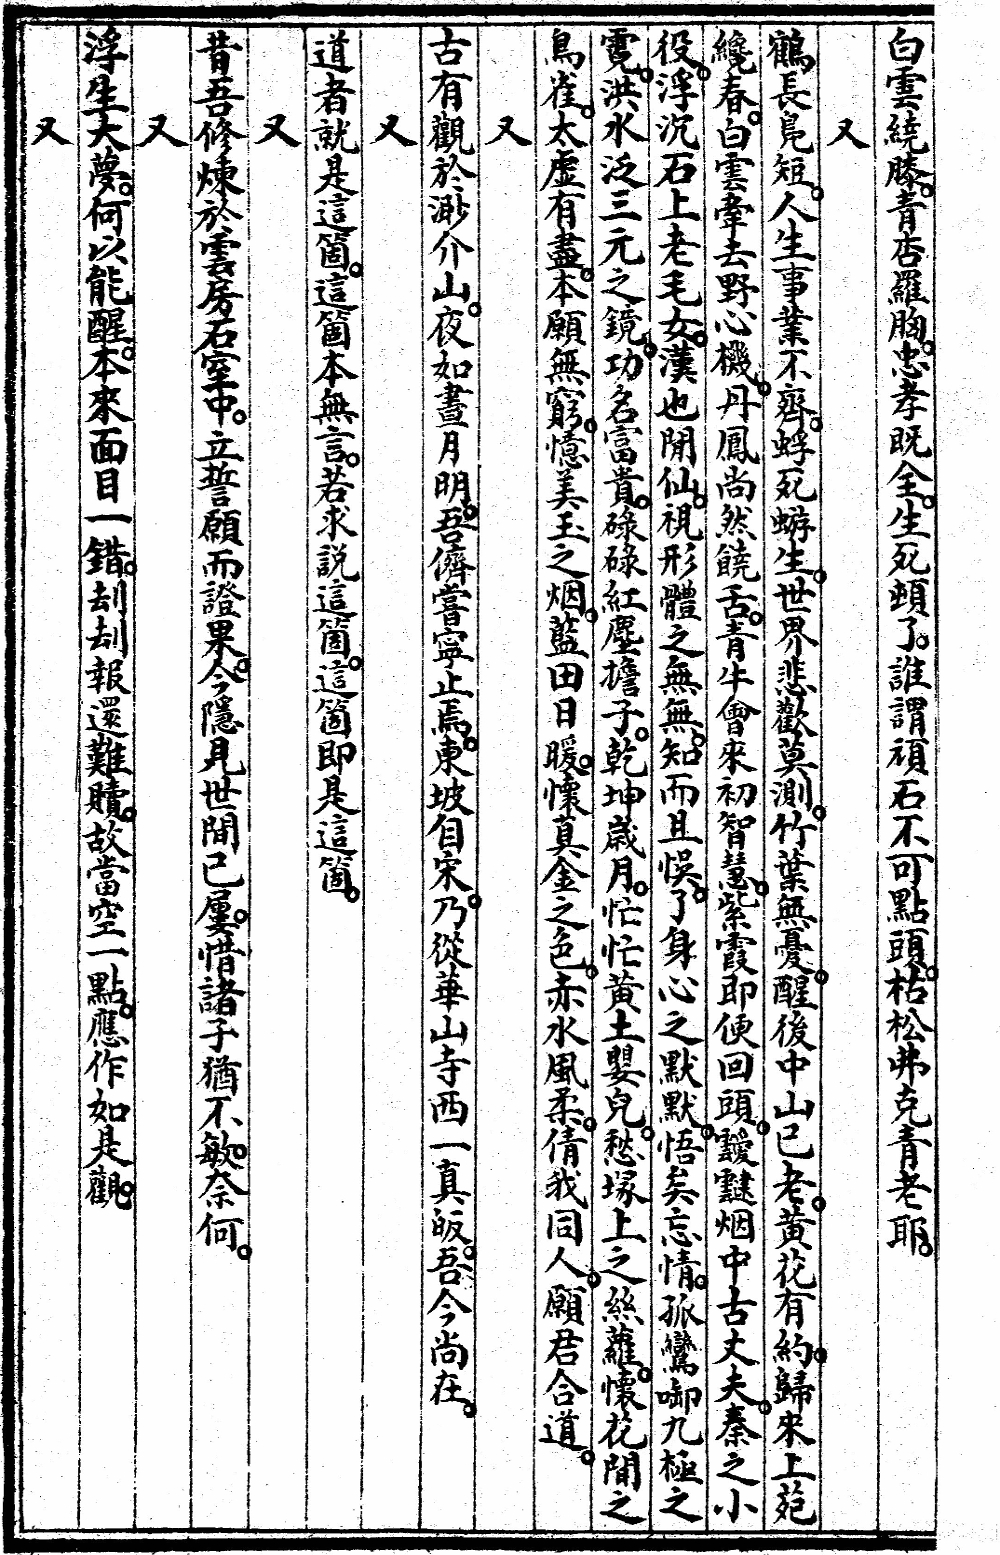 白雲繞膝。青杏羅胸。忠孝既全。生死頓了。誰謂頑石不可點頭。枯松弗克青老耶。
又
鶴長鳧短。人生事業不齊。蜉死蝣生。世界悲歡莫測。竹葉無憂。醒後中山已老。黃花有約。歸來上苑
纔春。白雲牽去野心機。丹鳳尚然饒舌。青牛會來初智慧。紫霞即便回頭。靉靆烟中古丈夫。秦之小
役。浮沉石上老毛女。漢也閒仙。視形體之無無。知而且悞。了身心之默默。悟矣忘情。孤鸞啣九極之
霓。洪水泛三元之鏡。功名富貴。碌碌紅塵擔子。乾坤歲月。忙忙黃土嬰兒。愁塚上之絲蘿。懷花間之
鳥雀。太虛有盡。本願無窮。憶美玉之烟。藍田日暖。懷真金之色。赤水風柔。倩我同人。願君合道。
又
古有觀於渺介山。夜如晝月明。吾儕嘗寧止焉。東坡自宋。乃從華山寺西一真皈。吾今尚在。
又
道者就是這箇。這箇本無言。若求説這箇。這箇即是這箇。
又
昔吾修煉於雲房石室中。立誓願而證果。今隱見世間已屢。惜諸子猶不敏。奈何。
又
浮生大夢。何以能醒。本來面目一錯。刦刦報還難贖。故當空一點。應作如是觀。
又